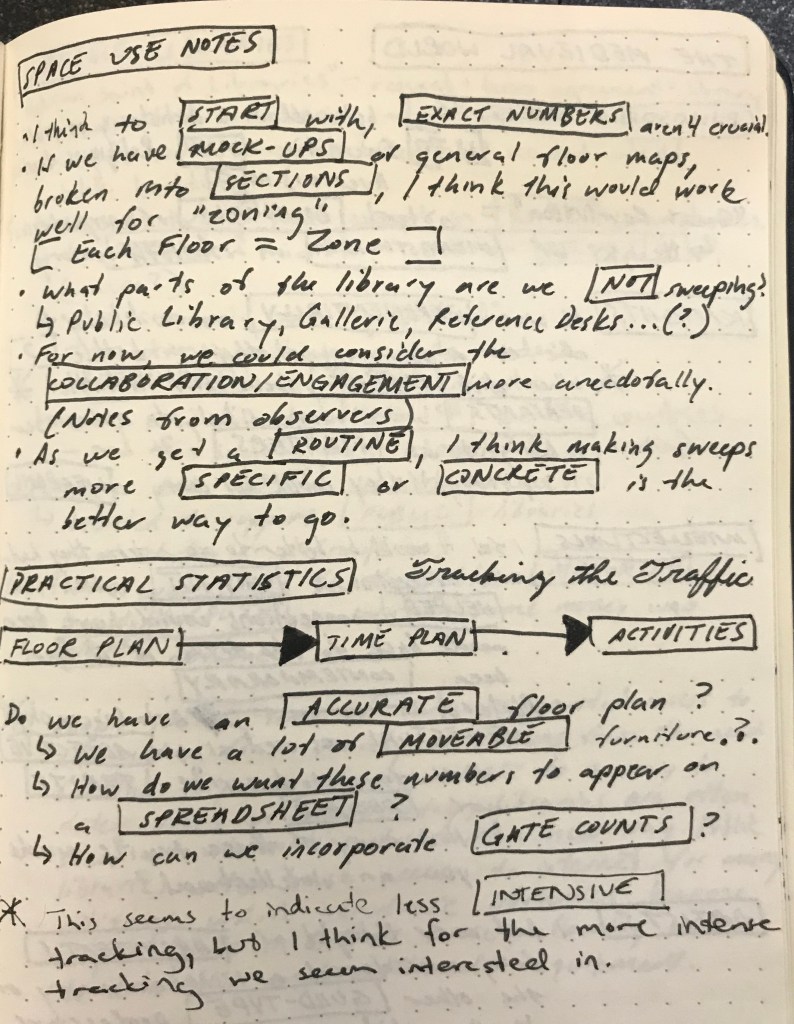 SPACE USE NOTES
· I think to START with, EXACT NUMBERS aren't crucial.
· If we have MOCK-UPS or general floor maps,
broken into SECTIONS, I think this would work
well for "zoning".
[Each Floor = Zone]
· What parts of the library are we NOT sweeping?
↳ Public Library, Gallerie, Reference Desks...(?)
· For now, we could consider the
COLLABORATION/ENGAGEMENT more anecdotally.
(Notes from observers)
· As we get a ROUTINE, I think making sweeps
more SPECIFIC or CONCRETE is the
better way to go.
PRACTICAL STATISTICS Tracking the Traffic
FLOOR PLAN → TIME PLAN → ACTIVITIES
Do we have an ACCURATE floor plan?
↳ We have a lot of MOVEABLE furniture.?.
↳ How do we want these numbers to appear on
a SPREADSHEET?
↳ How can we incorporate GATE COUNTS?
* This seems to indicate less INTENSIVE
tracking, but I think for the more intense
tracking we seem interested in.